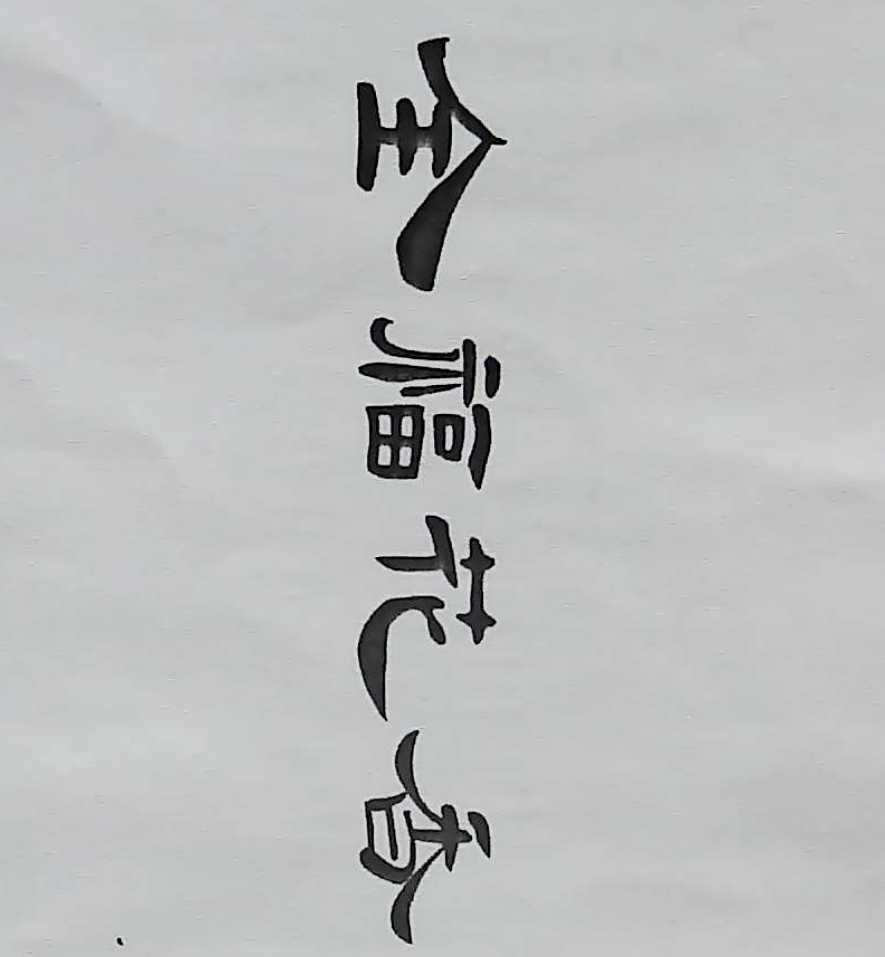 全福花香